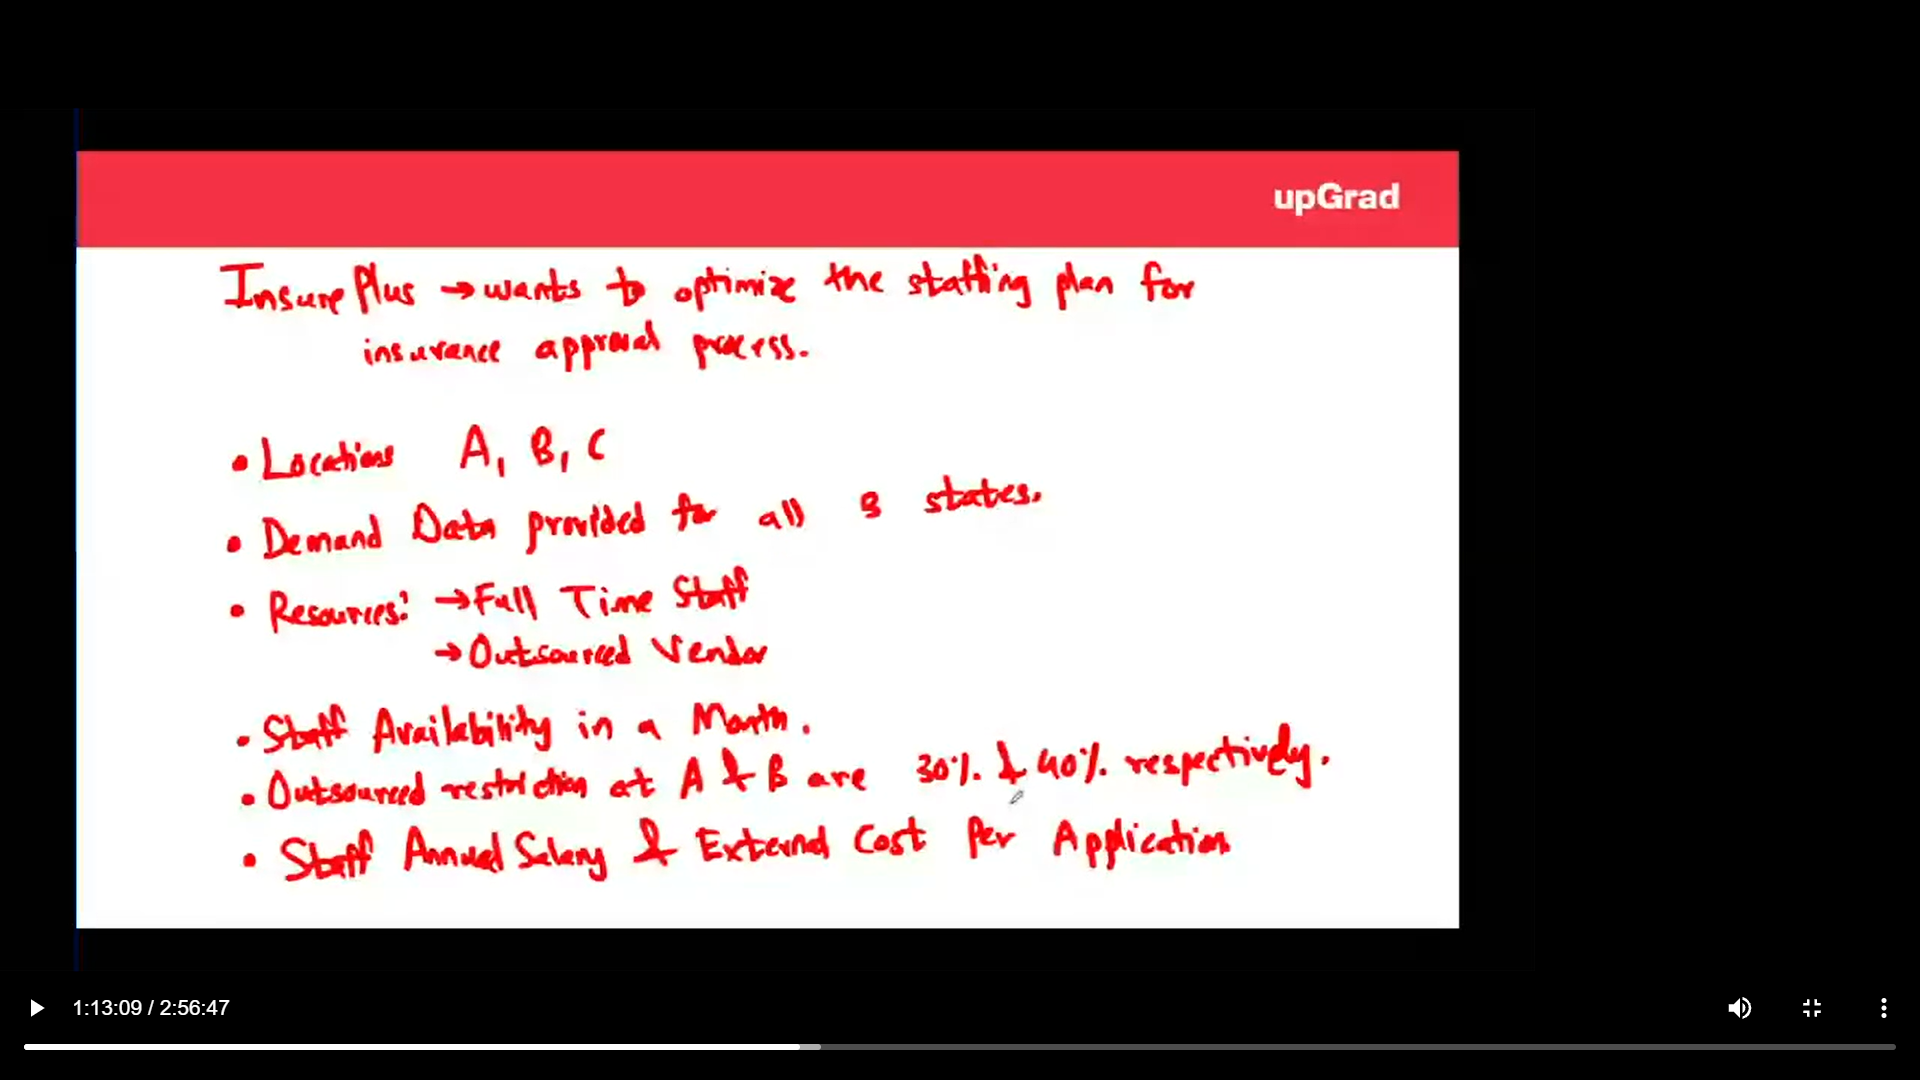 upGrad
InsurePlus → wants to optimize the staffing plan for
insurance approval process.
• Locations A, B, C
• Demand Data provided for all 3 states.
• Resources: → Full Time Staff
→ Outsourced Vendor
• Staff Availability in a Month.
• Outsourced restriction at A & B are 30% & 40% respectively.
• Staff Annual Salary & External Cost Per Application
1:13:09 / 2:56:47